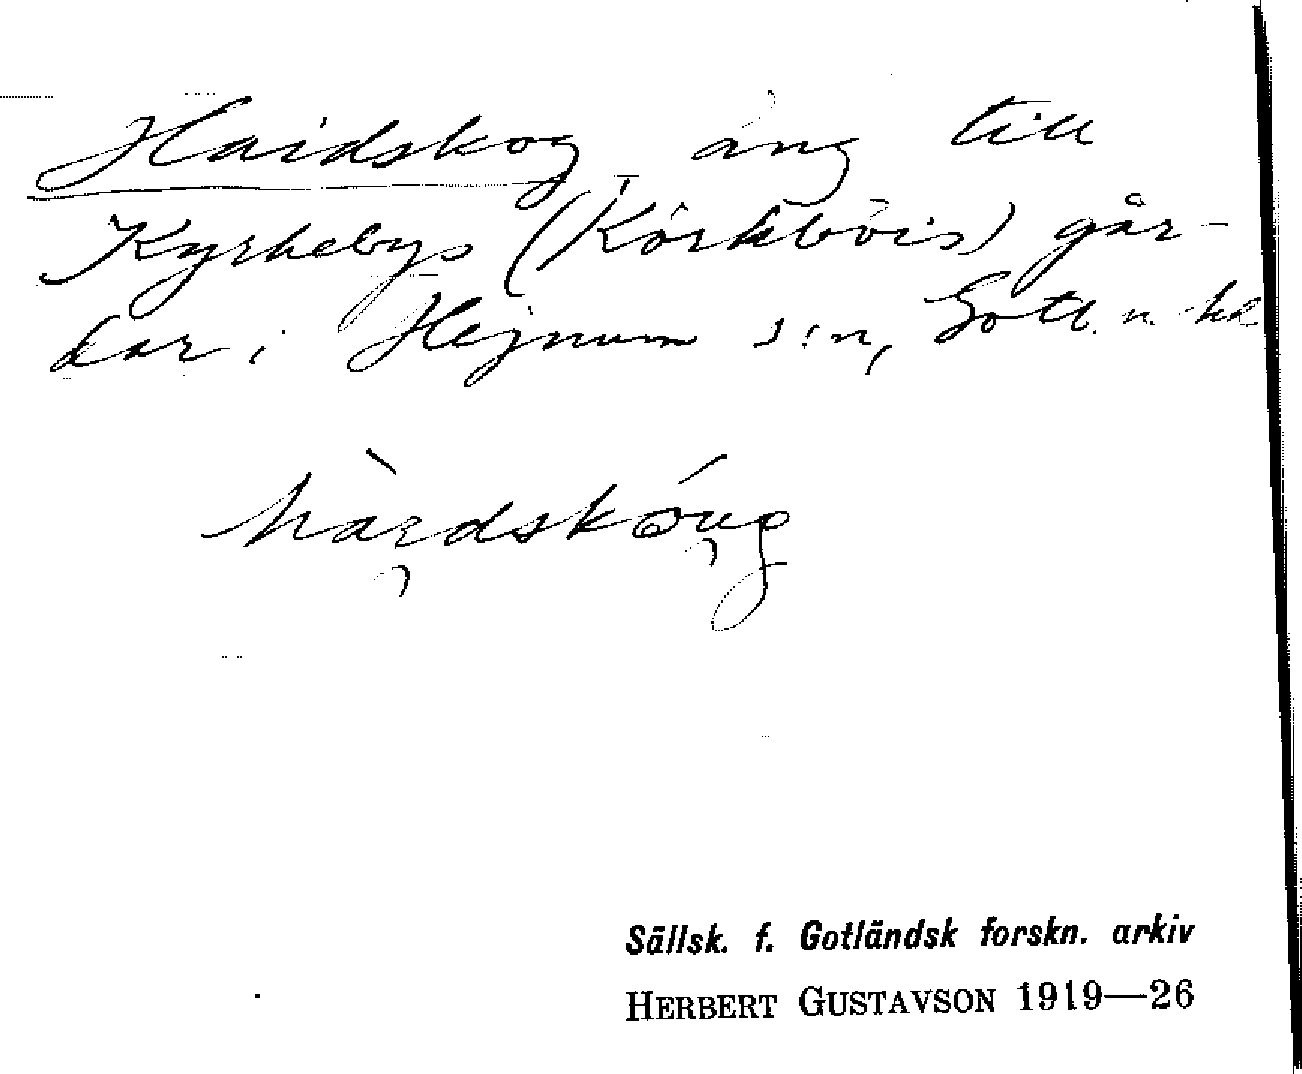 Haidskog äng till
Kyrkebys (Körkböis) går-
dar i Hejnum s:n, Gotl. n. hd
hàı̯dskóu̯g
Sällsk. f. Gotländsk forskn. arkiv
HERBERT GUSTAVSON 1919—26